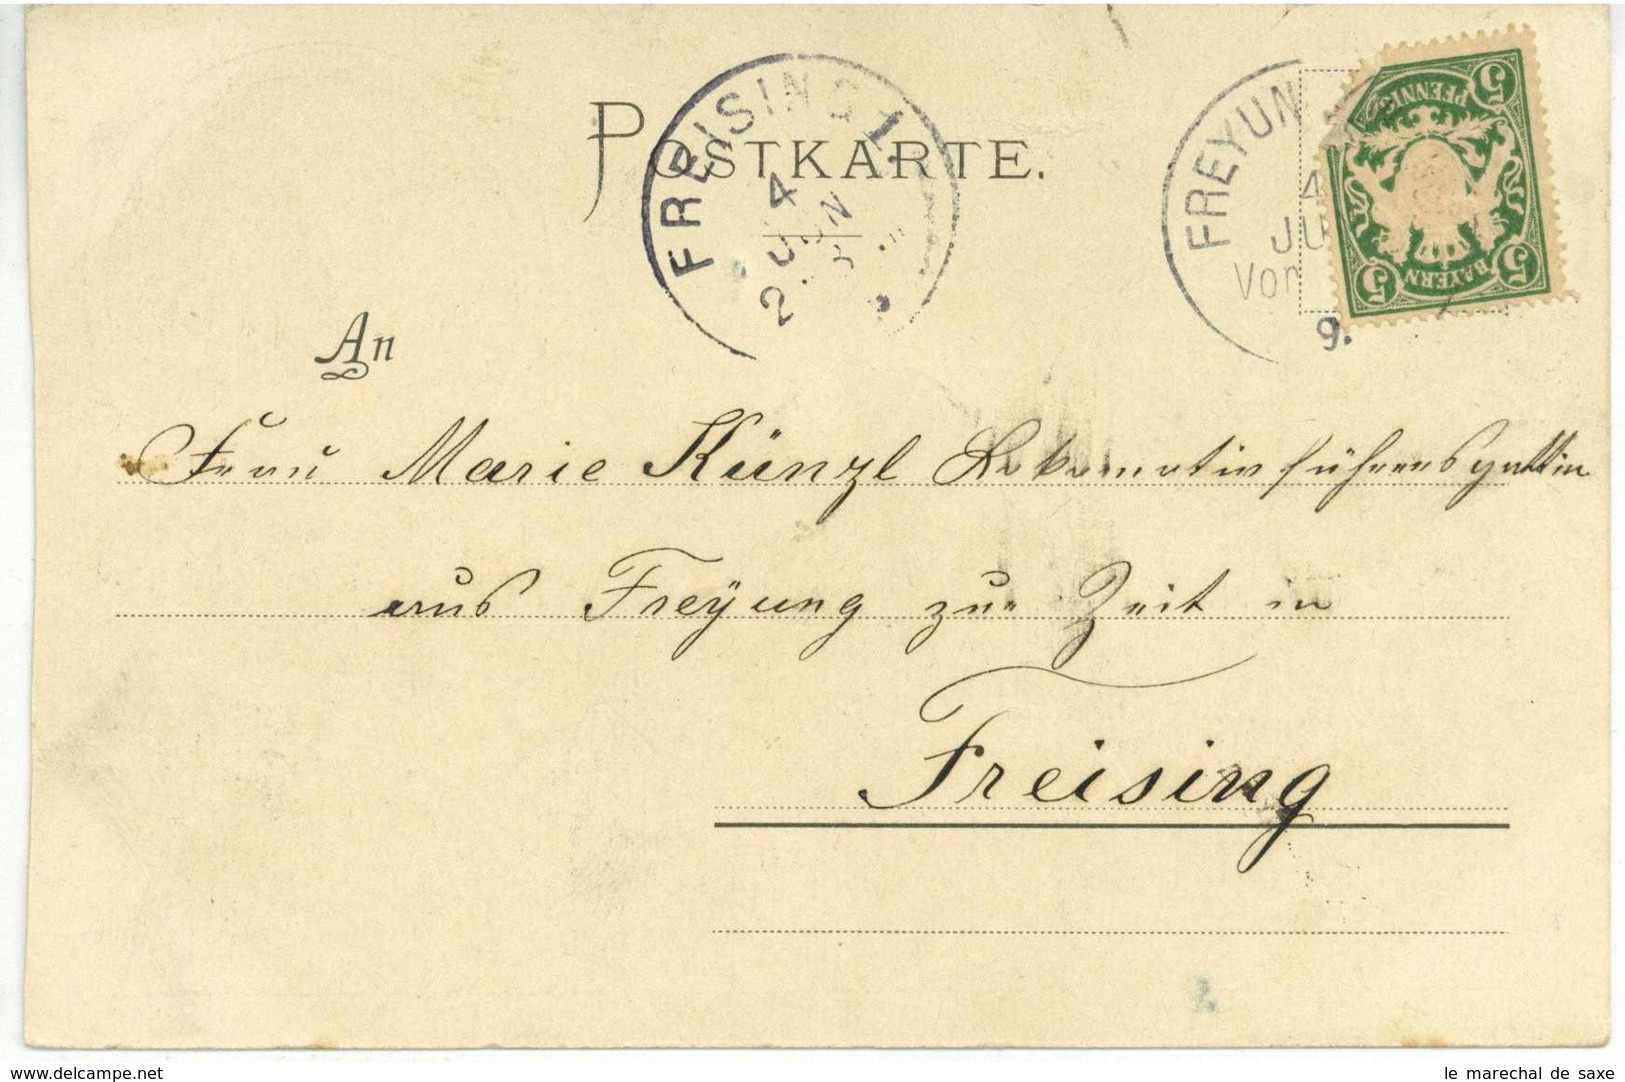 POSTKARTE.
FREISING 1.
4
JUN
2.
FREYUN
4
JU
Vor
9.
5
PFENNIG
BAYERN
5
5
An
Frau Marie Künzl Lokomotivführersgattin
aus Freÿung zur Zeit in
Freising
www.delcampe.net
le marechal de saxe